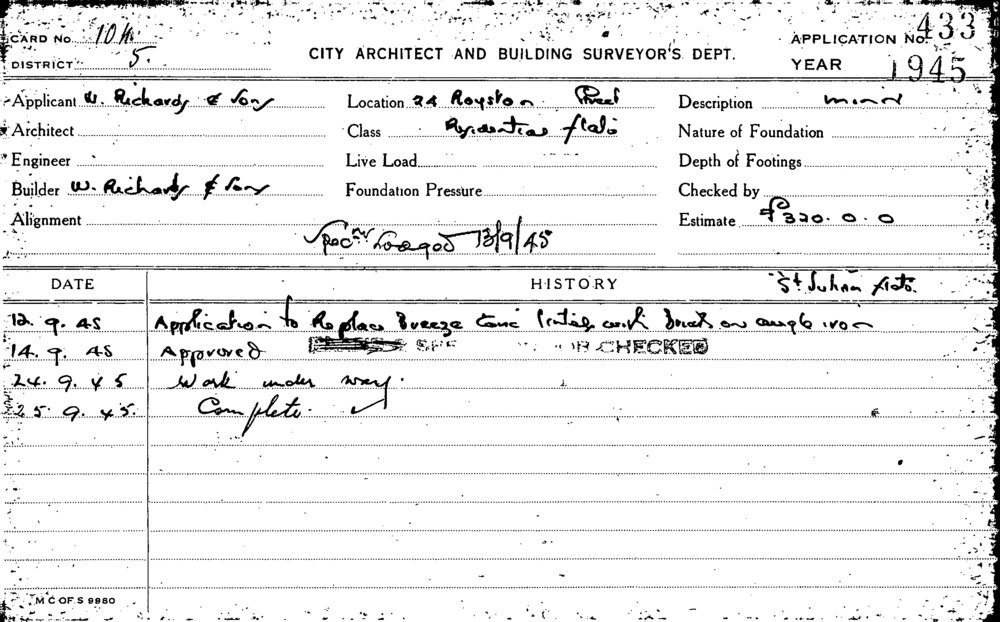 CARD No. 10
DISTRICT 5.
CITY ARCHITECT AND BUILDING SURVEYOR'S DEPT.
APPLICATION No. 433
YEAR 1945
Applicant W. Richards & Sons Location 24 Royston Street Description minor
Architect Class Residential flats Nature of Foundation
Engineer Live Load Depth of Footings
Builder W. Richards & Sons Foundation Pressure Checked by
Alignment Estimate £320.0.0
13/9/45
DATE HISTORY flats.
12. 9. 45 Application to Replace Breeze with Brick on angle iron
14. 9. 45 Approved CHECKED
24. 9. 45 Work under way.
25. 9. 45. Complete. ✓
M C OF S 9980